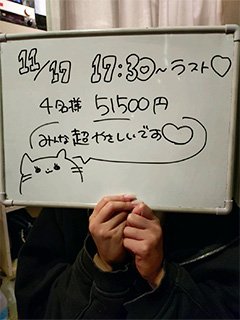 11/17 17:30~ラスト♡
4名様 51500円
みんな超やさしいです♡